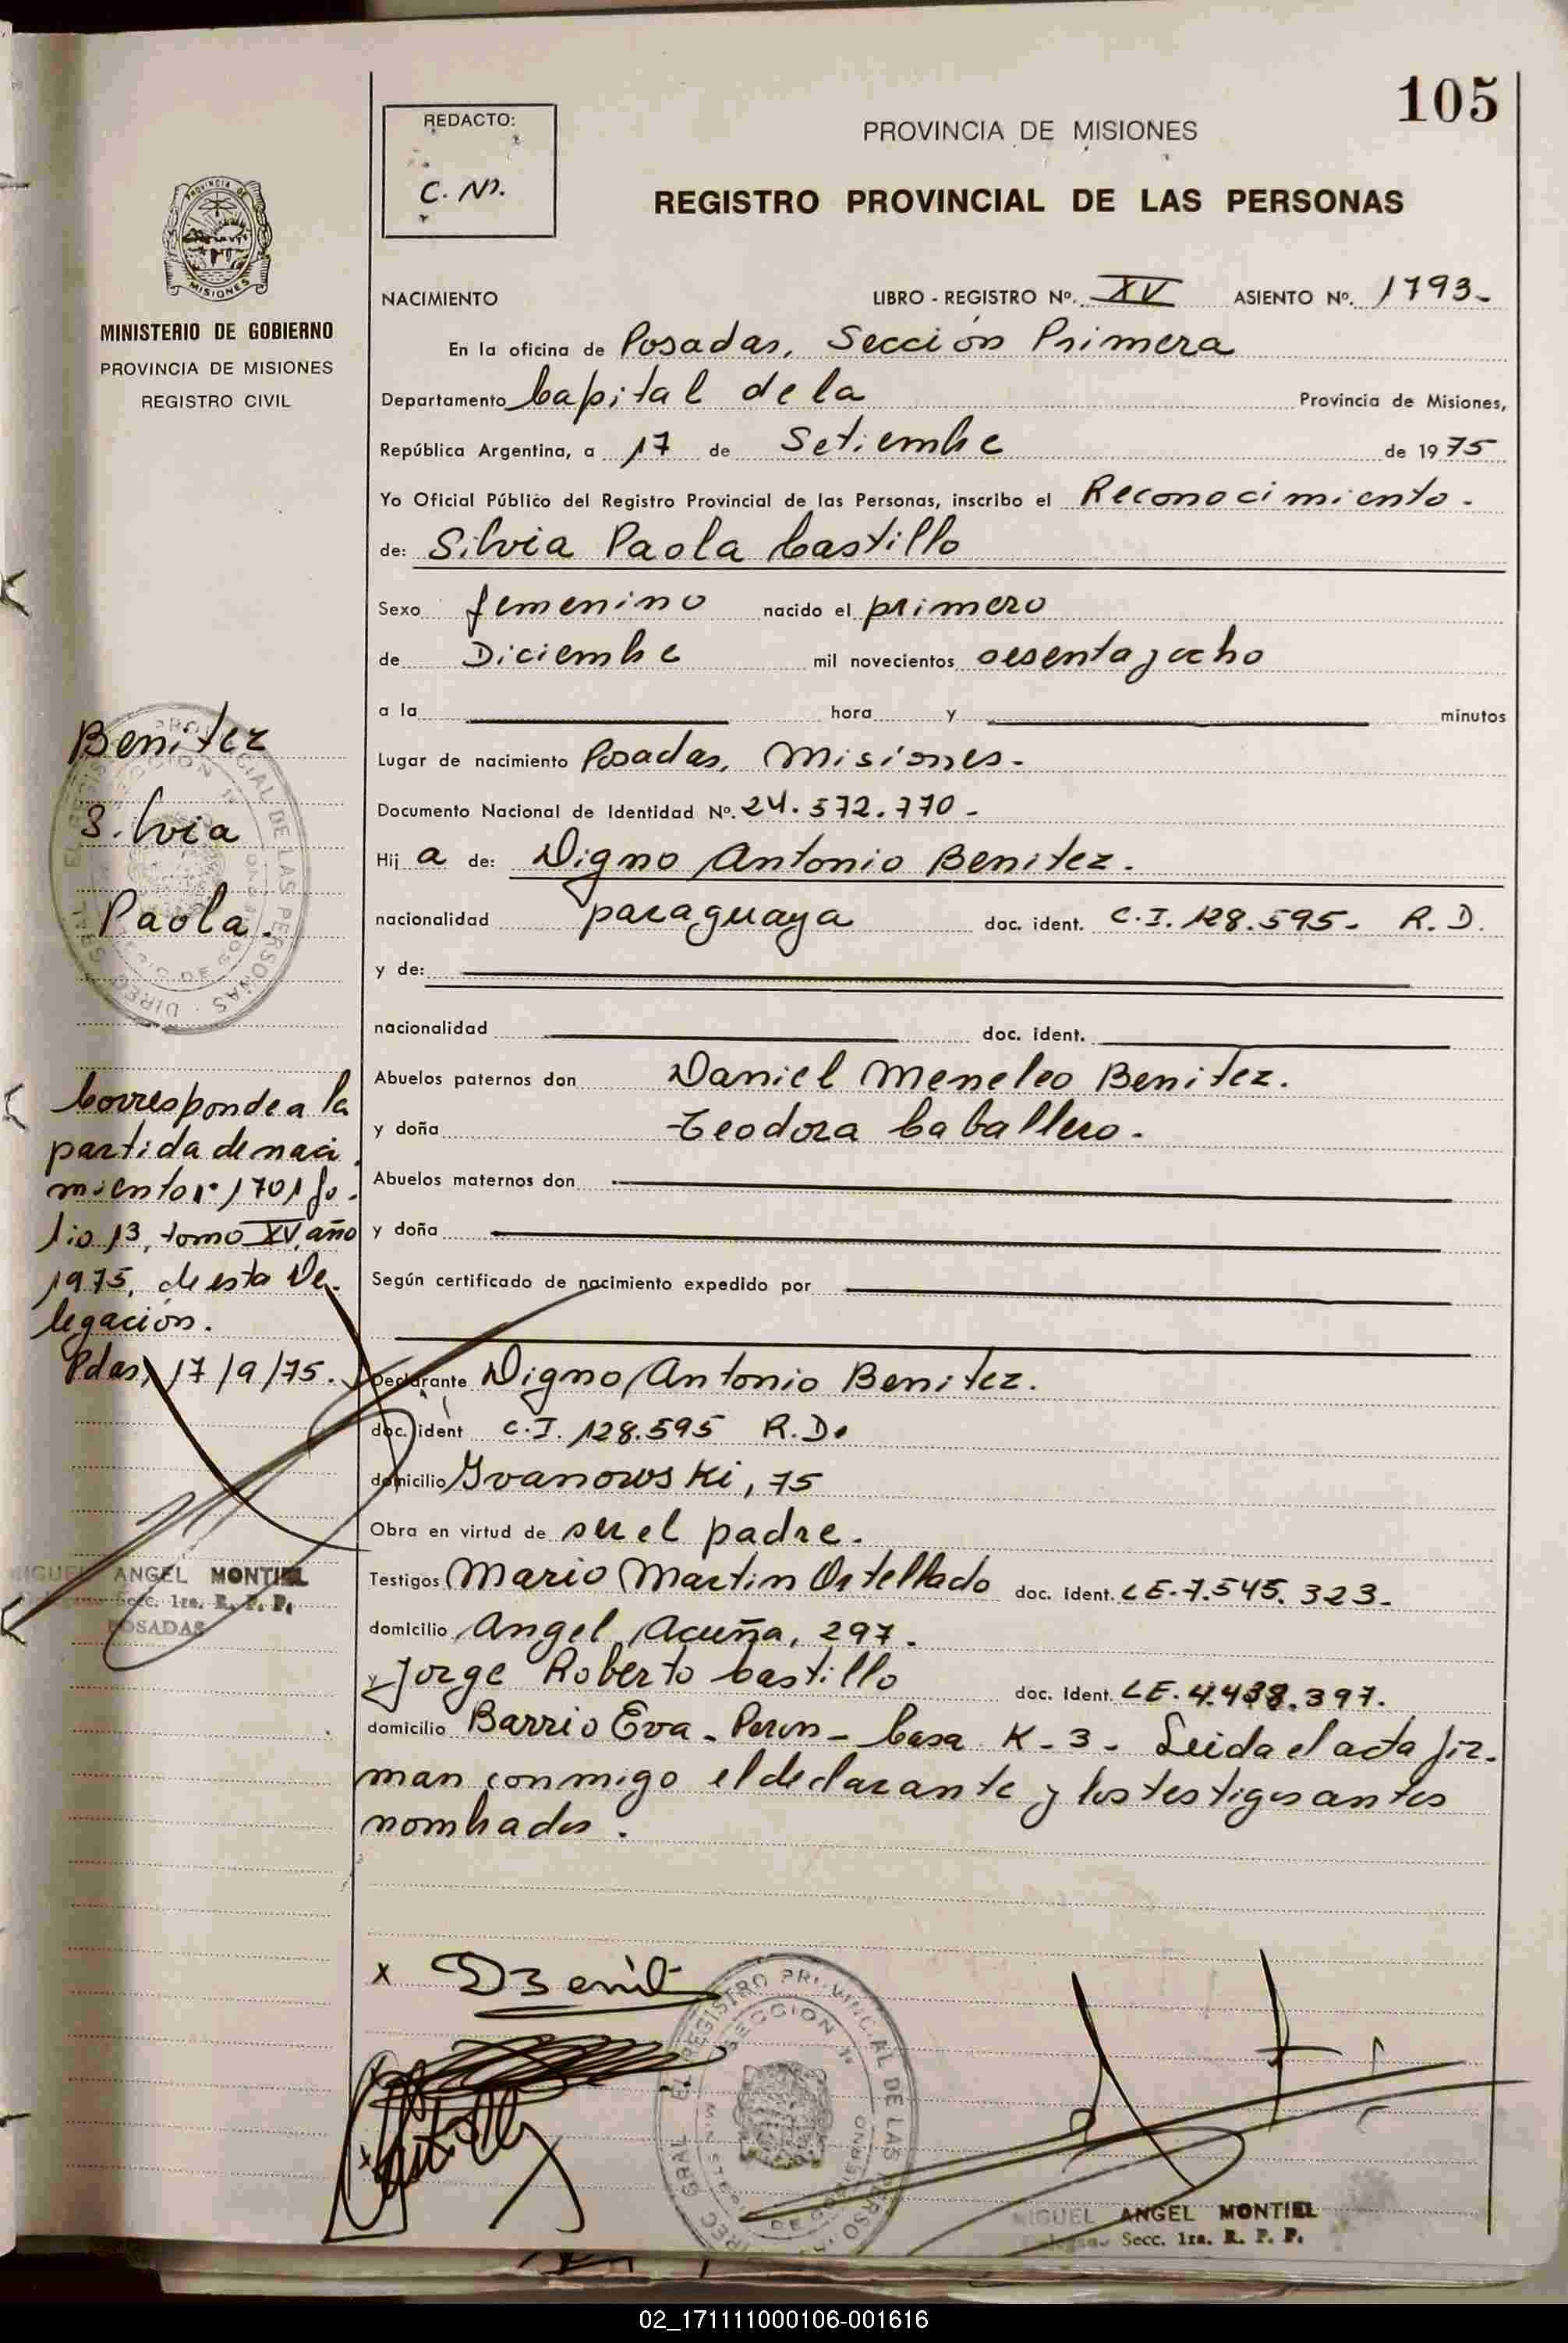 105
REDACTO:
C. N.
PROVINCIA DE MISIONES
REGISTRO PROVINCIAL DE LAS PERSONAS
PROVINCIA DE
MISIONES
MINISTERIO DE GOBIERNO
PROVINCIA DE MISIONES
REGISTRO CIVIL
NACIMIENTO LIBRO - REGISTRO Nº. XV ASIENTO Nº. 1793-
En la oficina de Posadas, Sección Primera
Departamento Capital de la Provincia de Misiones,
República Argentina, a 17 de Setiembre de 1975
Yo Oficial Público del Registro Provincial de las Personas, inscribo el Reconocimiento.
de: Silvia Paola Castillo
Sexo femenino nacido el primero
de Diciembre mil novecientos sesenta y ocho
a la hora y minutos
Lugar de nacimiento Posadas, Misiones.-
Documento Nacional de Identidad Nº. 24.572.770-
Hij a de: Digno Antonio Benitez.
nacionalidad paraguaya doc. ident. C.I. 128.595- R.D.
y de:
nacionalidad doc. ident.
Abuelos paternos don Daniel Meneleo Benitez.
y doña Teodora Caballero.
Abuelos maternos don
y doña
Según certificado de nacimiento expedido por
Declarante Digno Antonio Benitez.
doc. ident C.I. 128.595 R.D.
domicilio Ivanowski, 75
Obra en virtud de ser el padre.
Testigos Mario Martin Ortellado doc. ident. LE-7.545.323-
domicilio Angel Acuña, 297.
y Jorge Roberto Castillo doc. ident. LE-4.438.397.
domicilio Barrio Eva-Peron-Casa K-3- Leida el acta fir-
man conmigo el declarante y los testigos antes
nombrados.
Benitez
Silvia
Paola.
Corresponde a la
partida de naci
miento nº 1701 fo-
lio 13, tomo XV, año
1975, de esta De-
legación.
Pdas, 17/9/75.
MIGUEL ANGEL MONTIEL
Secc. 1ra. R. P. P.
POSADAS
x
REGISTRO PROVINCIAL DE LAS PERSONAS
SECCION 1ª
MIGUEL ANGEL MONTIEL
Secc. 1ra. R. P. P.
02_171111000106-001616